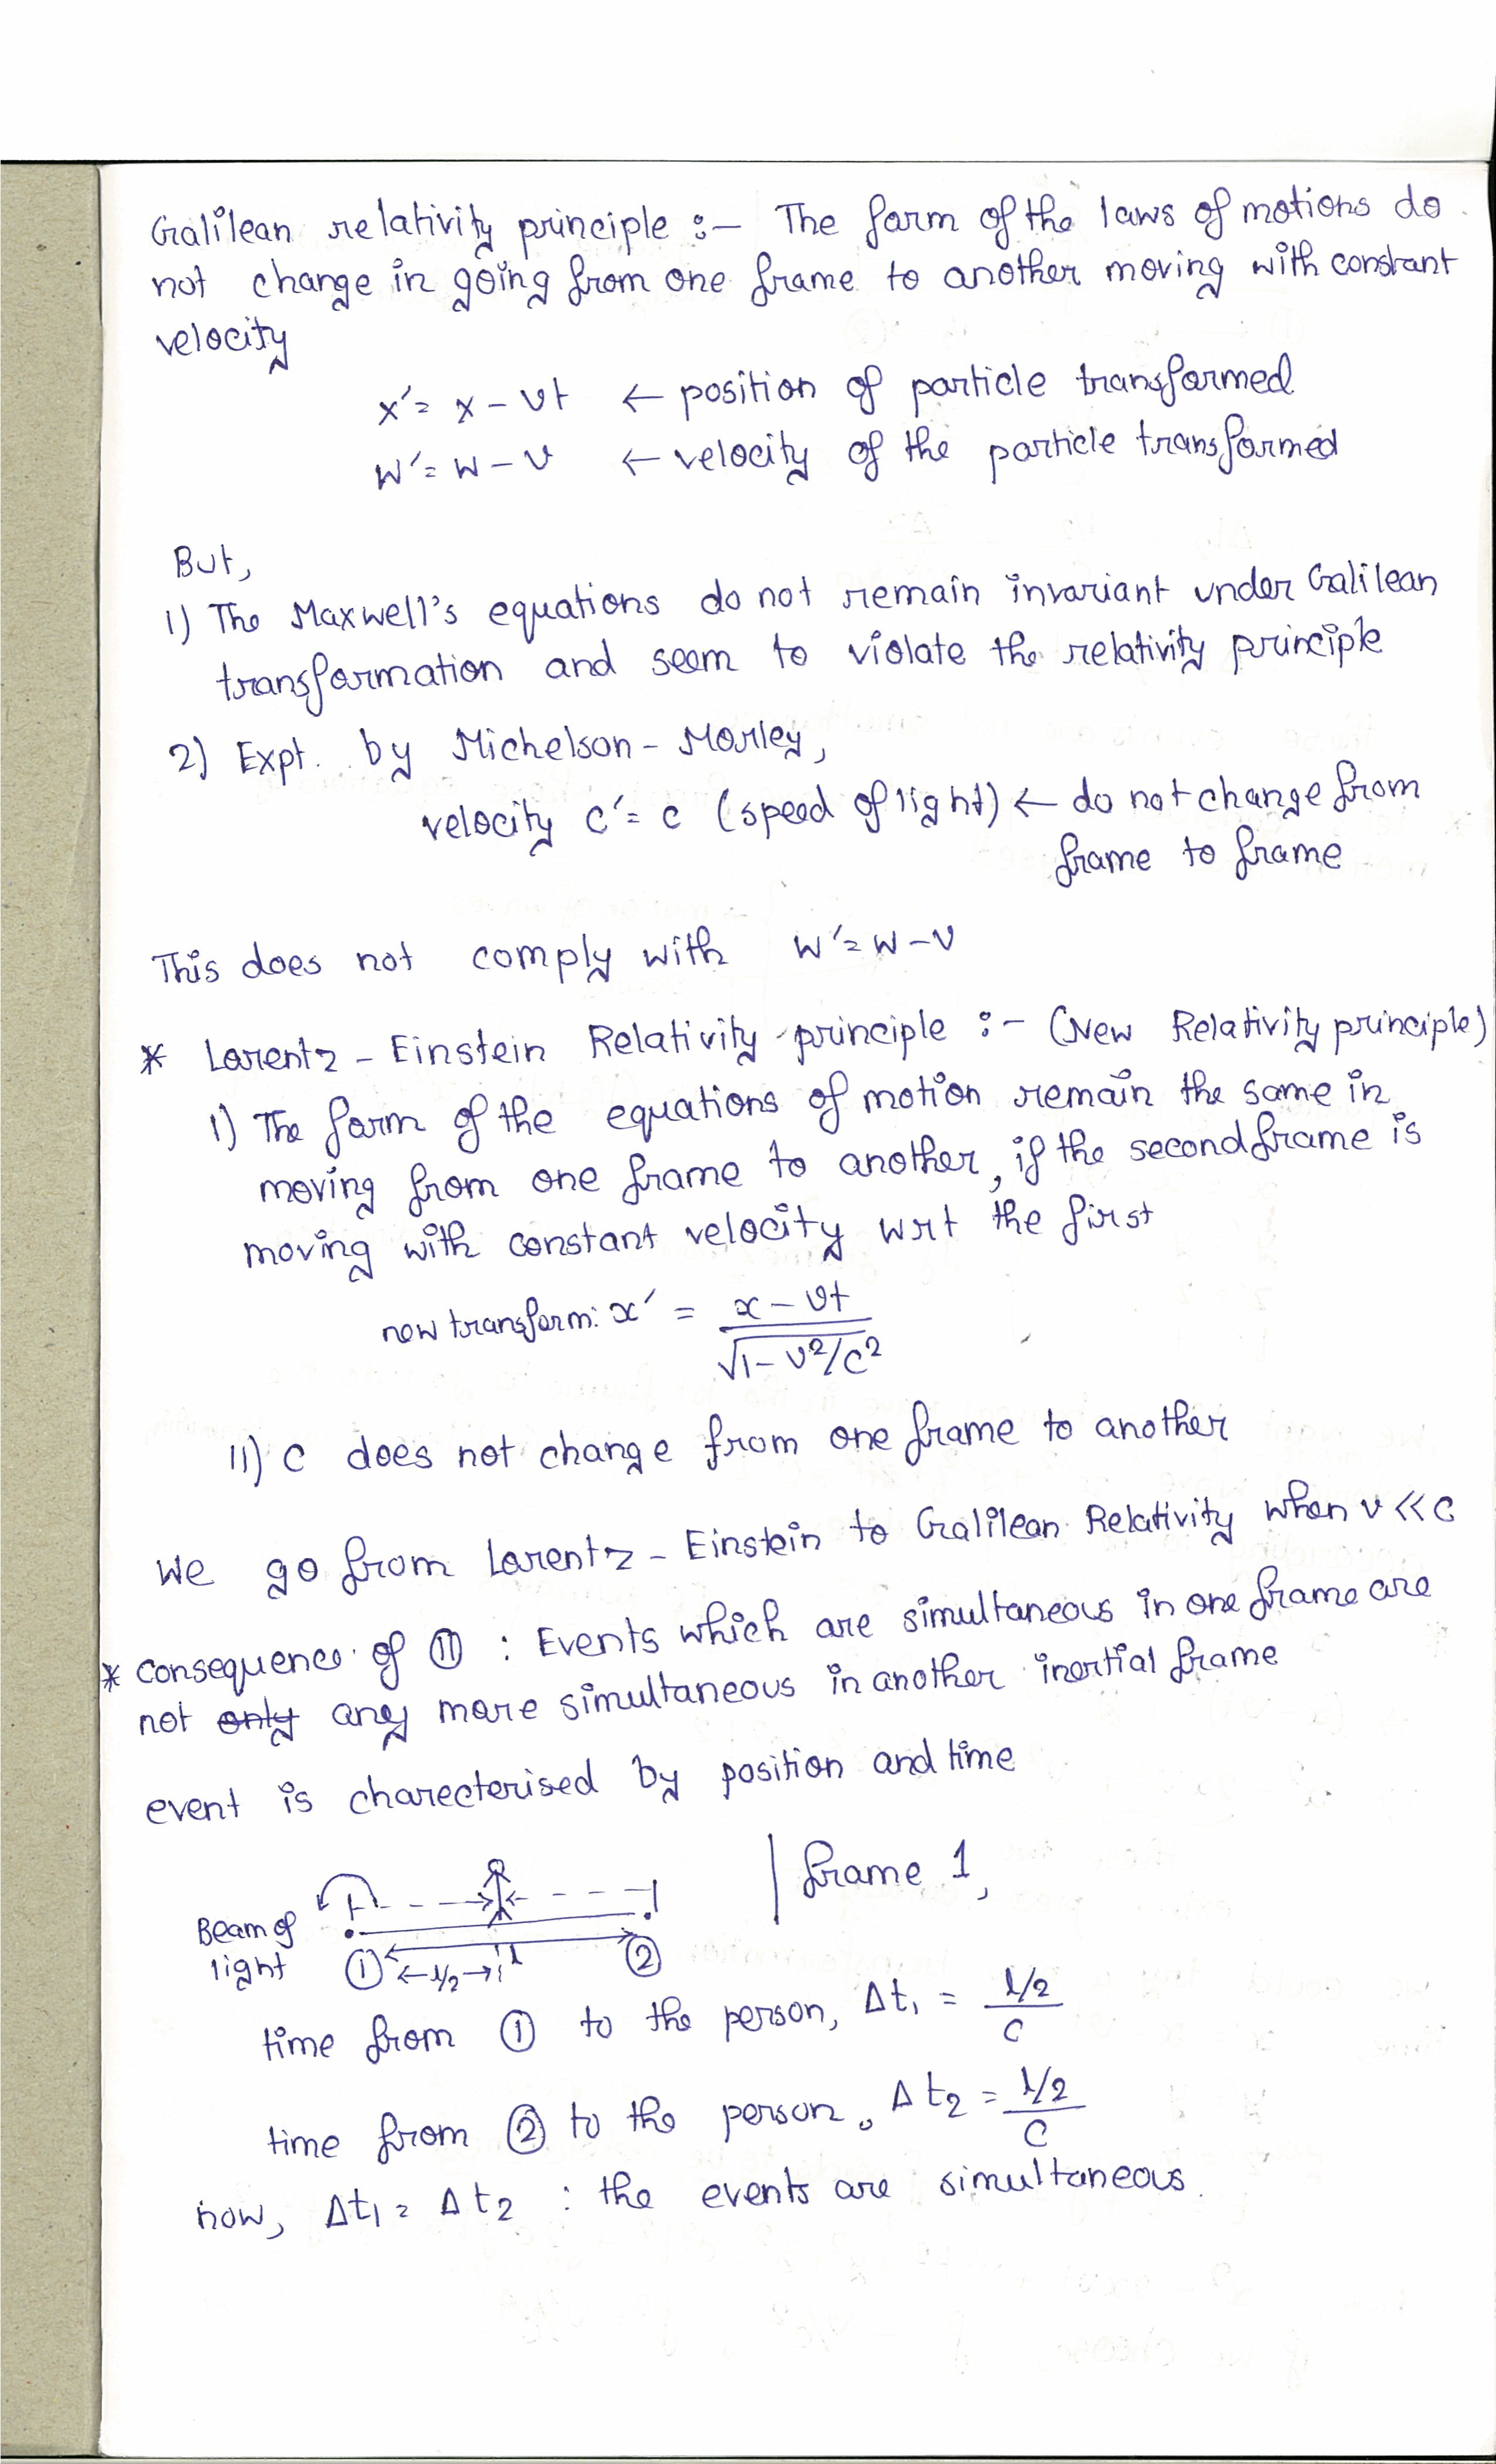 Galilean relativity principle :- The form of the laws of motions do
not change in going from one frame to another moving with constant
velocity
x' = x - vt ← position of particle transformed
w' = w - v ← velocity of the particle transformed
But,
1) The Maxwell's equations do not remain invariant under Galilean
transformation and seem to violate the relativity principle
2) Expt. by Michelson - Morley,
velocity c' = c (speed of light) ← do not change from
frame to frame
This does not comply with w' = w - v
* Lorentz - Einstein Relativity principle :- (New Relativity principle)
1) The form of the equations of motion remain the same in
moving from one frame to another, if the second frame is
moving with constant velocity wrt the first
new transform: x' = (x - vt) / √(1 - v²/c²)
11) c does not change from one frame to another
We go from Lorentz - Einstein to Galilean Relativity when v << c
* consequence of ⑪ : Events which are simultaneous in one frame are
not only any more simultaneous in another inertial frame
event is charecterised by position and time
frame 1,
Beam of
light
① l/2 l ②
time from ① to the person, Δt₁ = (l/2)/c
time from ② to the person, Δt₂ = (l/2)/c
now, Δt₁ = Δt₂ : the events are simultaneous.